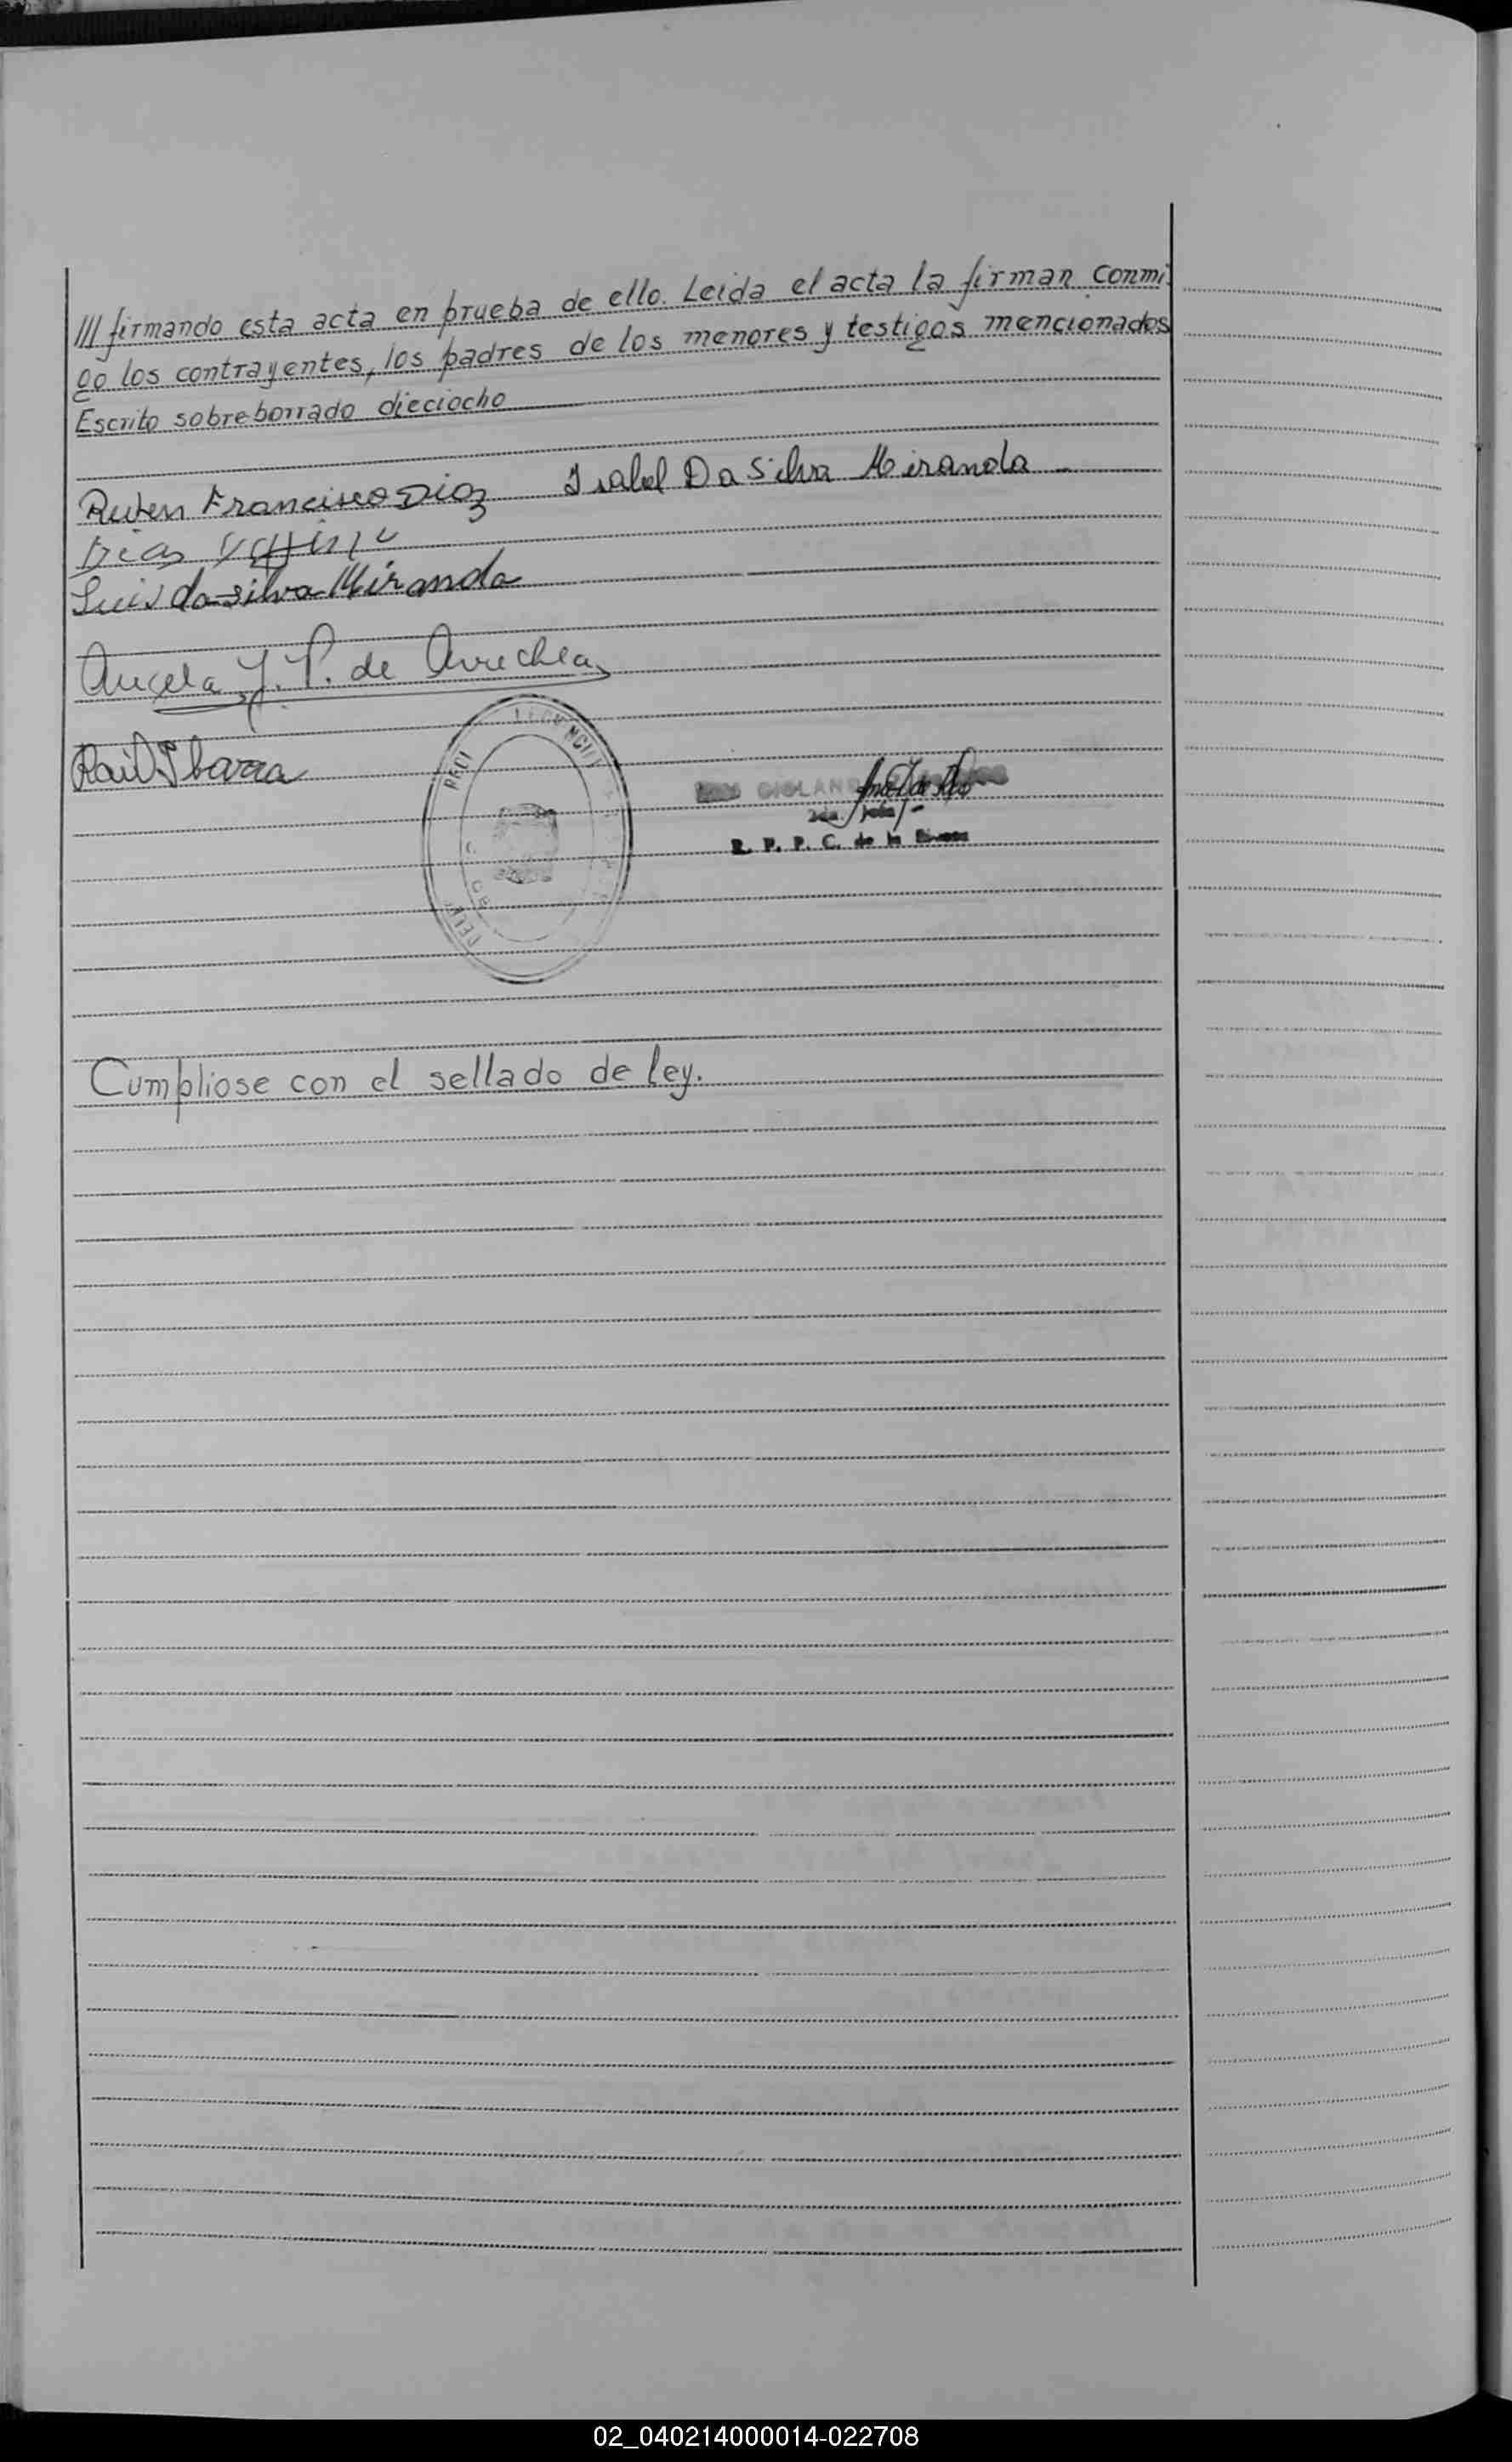 /// firmando esta acta en prueba de ello. Leida el acta la firman conmi
go los contrayentes, los padres de los menores y testigos mencionados
Escrito sobreborrado dieciocho
Ruben Francisco Dioz Isabel Da Silva Miranda
Dias
Luis da silva Miranda
Angela J. P. de Arrechea
Raul Ibarra
GIGLAN
2da. Jefa
R. P. P. C. de la
Cumpliose con el sellado de ley.
02_040214000014-022708